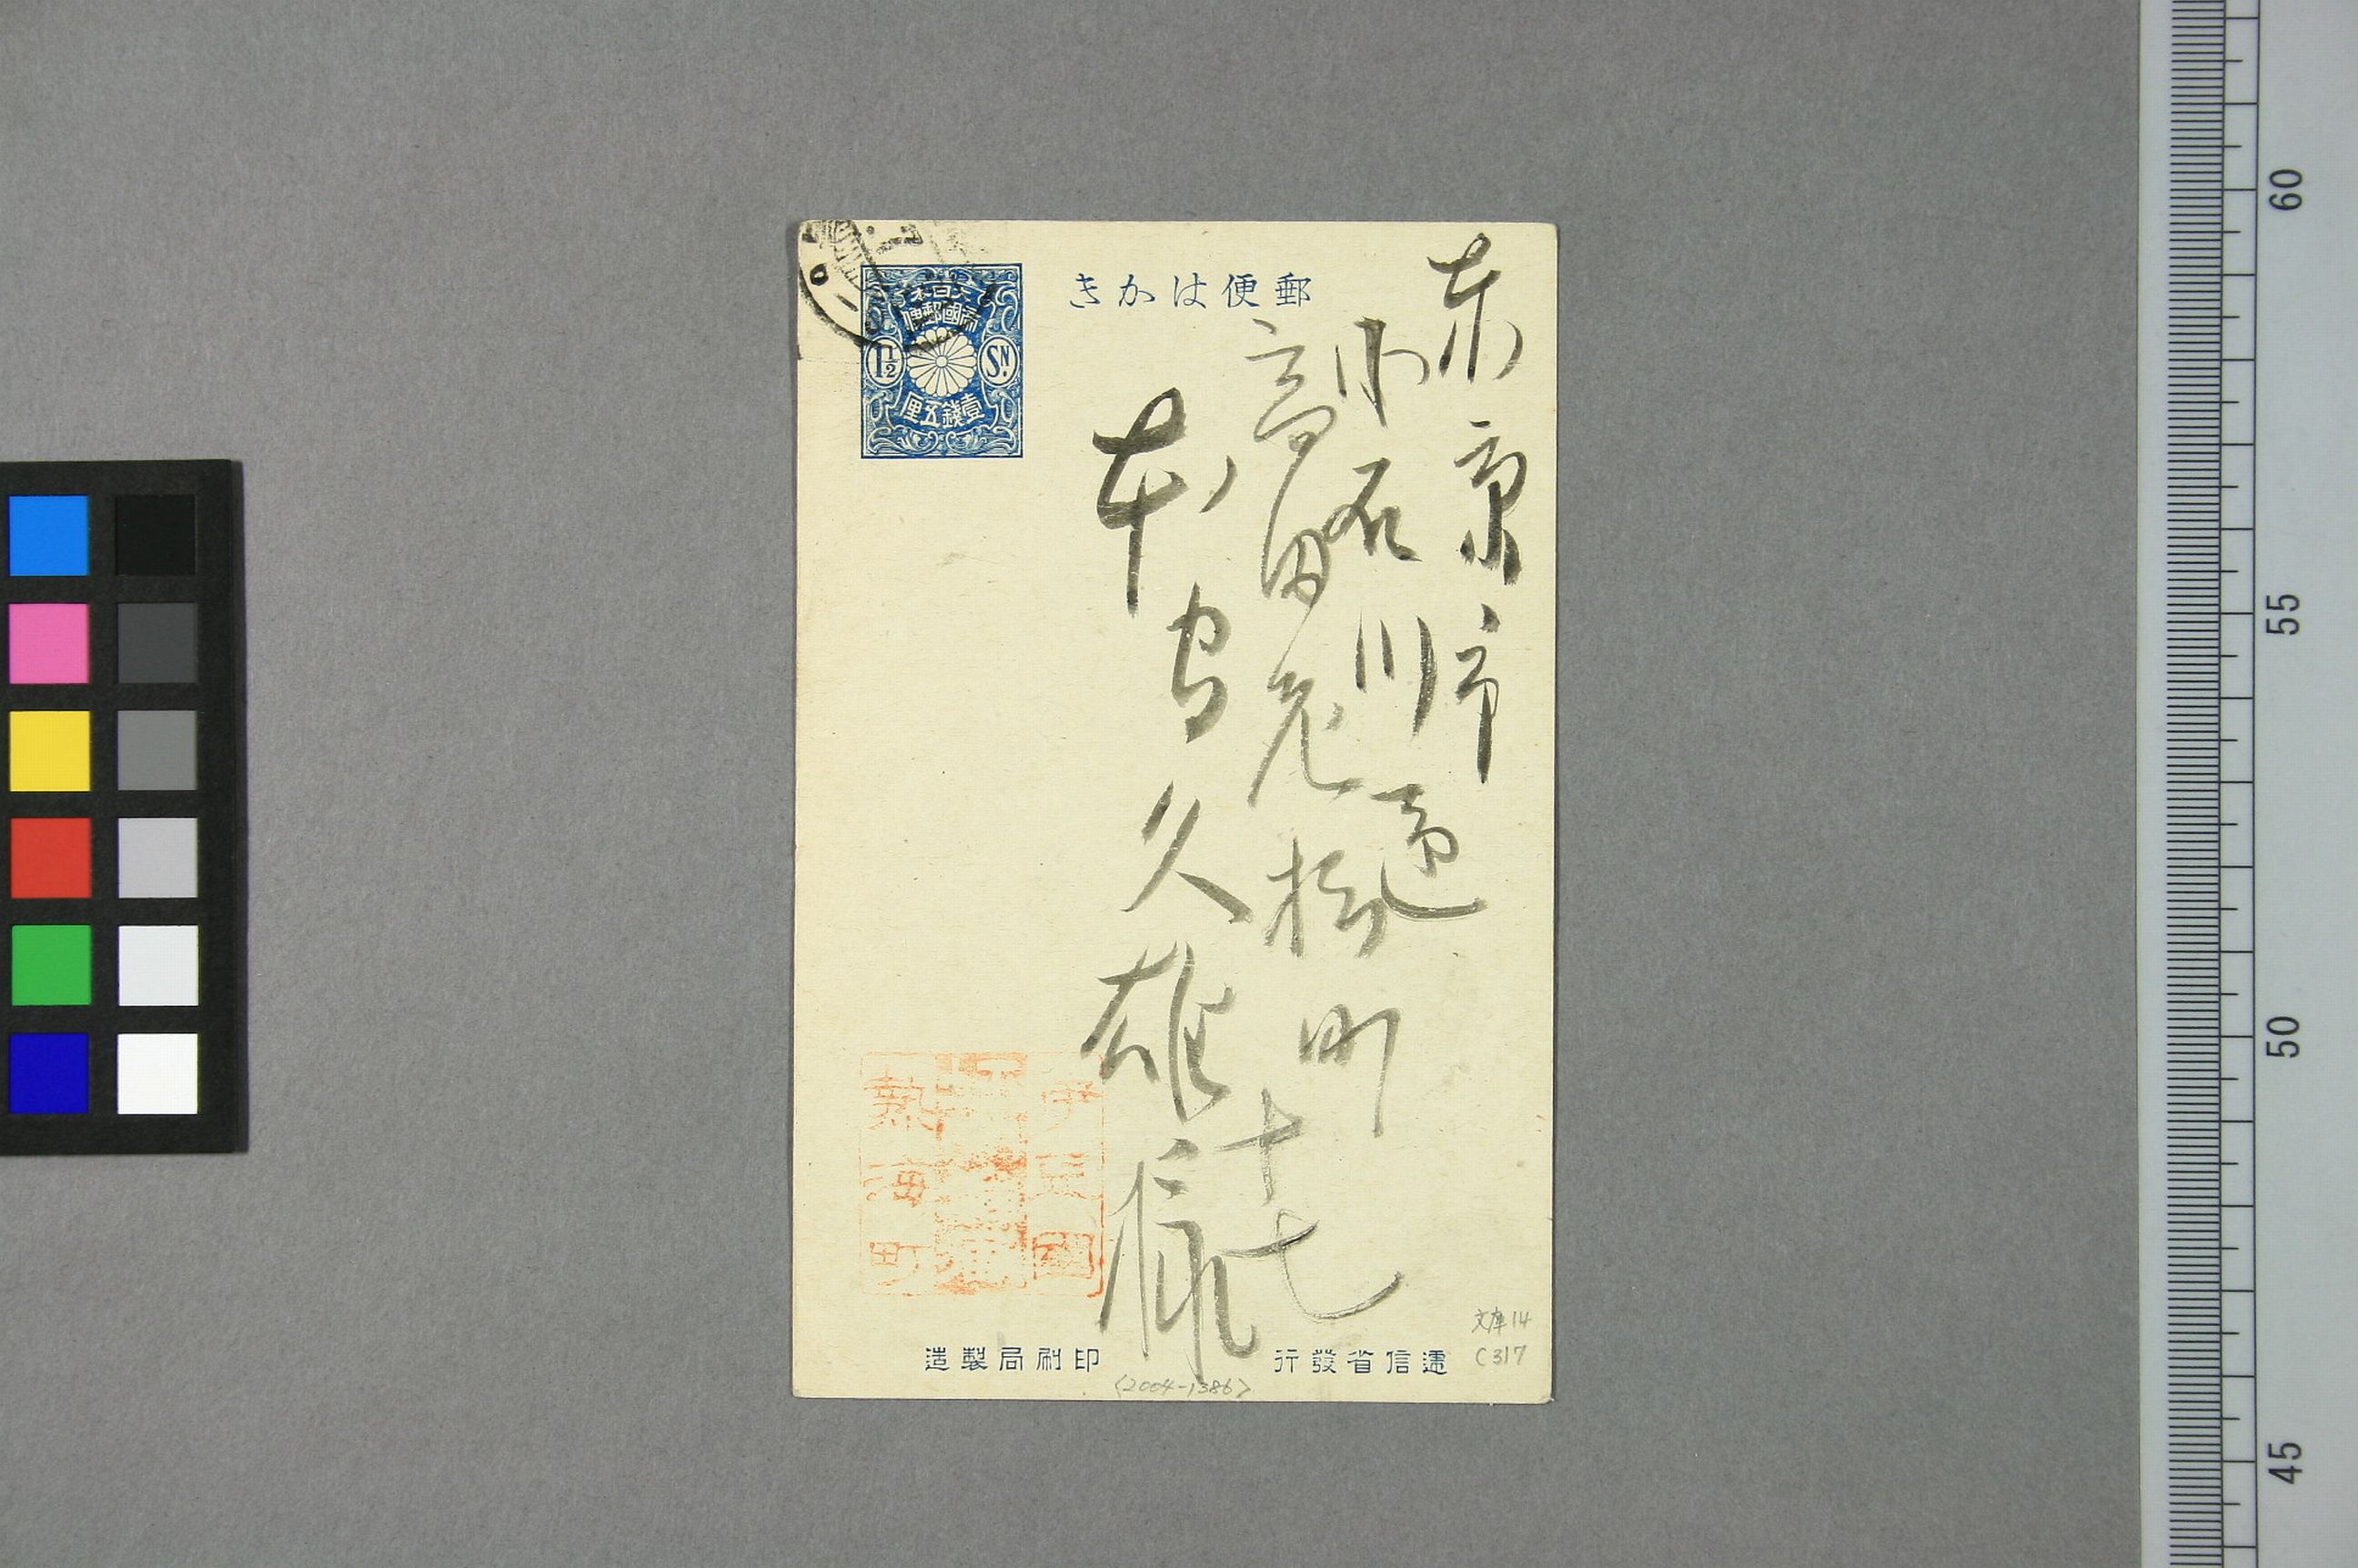 郵便はかき
大日本
帝國郵便
1½ SN.
壹錢五厘
東京市
小石川區
高田老松町
十七
本間久雄様
伊豆國
熱海町
遞信省發行
印刷局製造
文庫14
C317
<2004-1386>
60
55
50
45